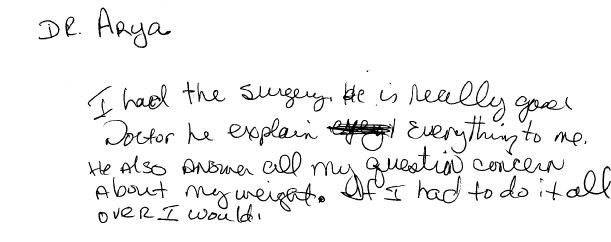 DR. Arya
I had the surgery. He is really good
Doctor he explain everything to me.
He Also Answer all my question concern
About my weight. If I had to do it all
over I would.